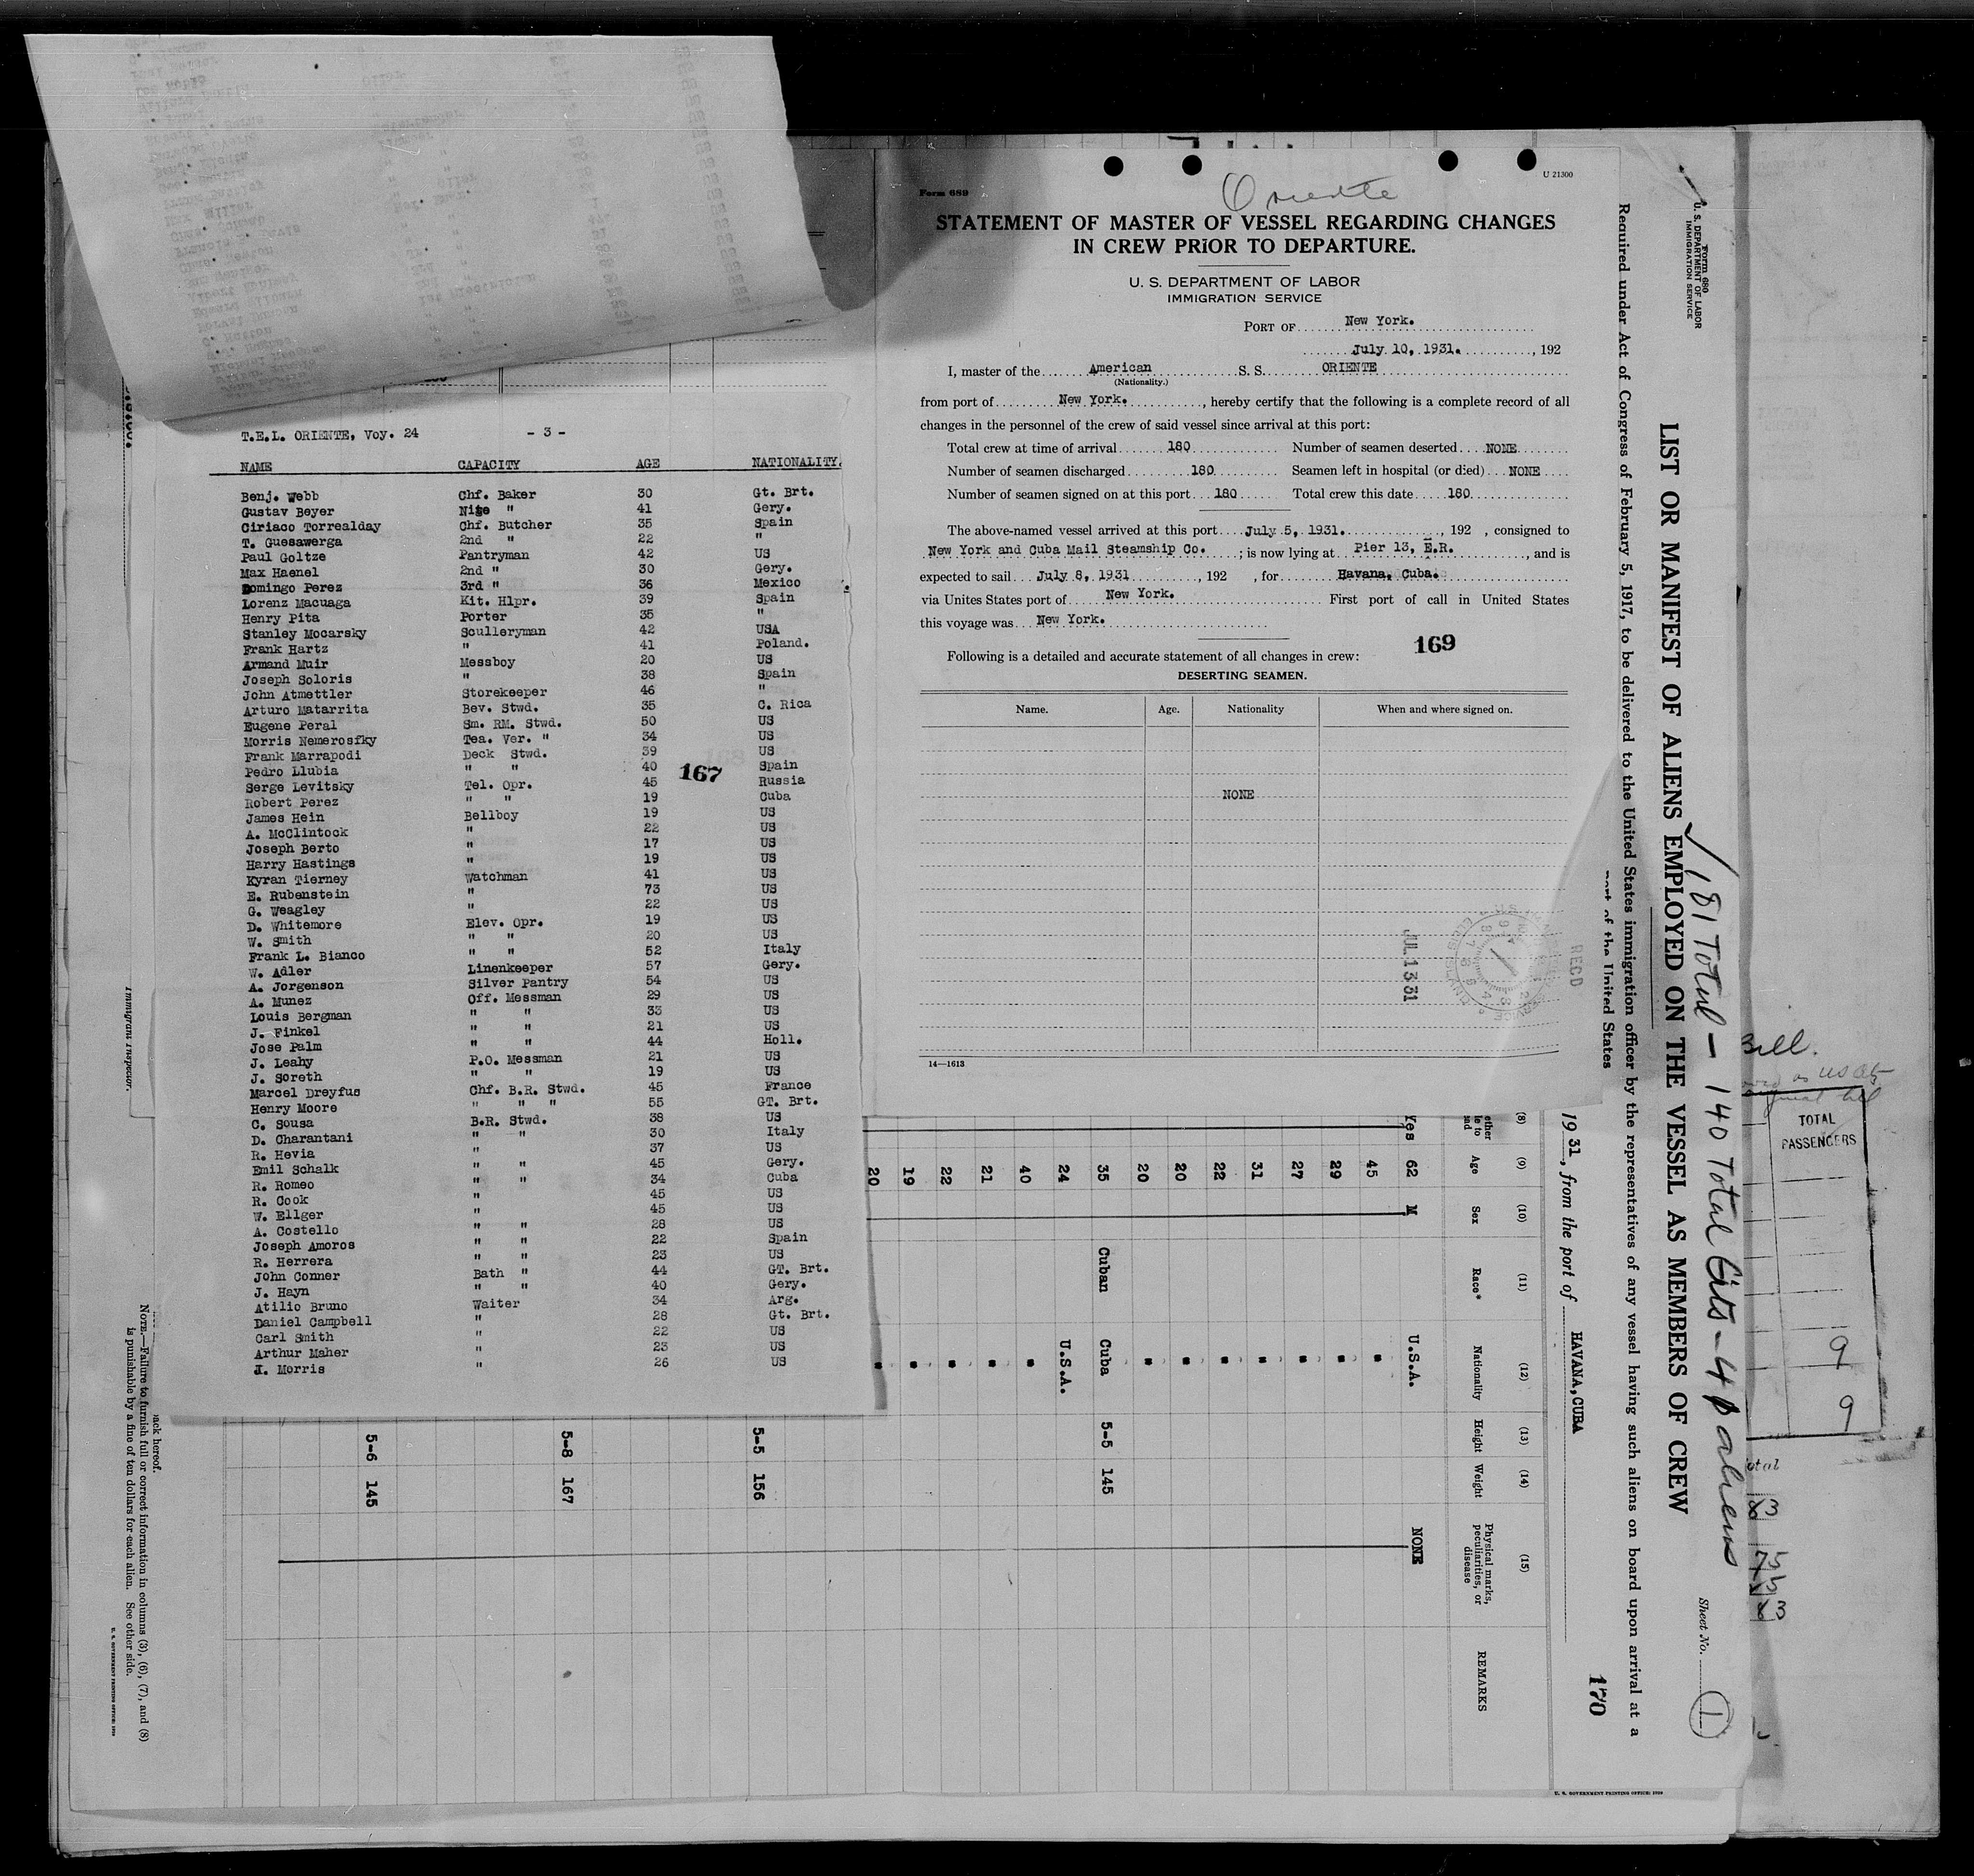 T.E.L. ORIENTE, Voy. 24 - 3 -
NAME CAPACITY AGE NATIONALITY.
Benj. Webb Chf. Baker 30 Gt. Brt.
Gustav Beyer Nite " 41 Gery.
Ciriaco Torrealday Chf. Butcher 35 Spain
T. Guesawerga 2nd " 22 "
Paul Goltze Pantryman 42 US
Max Haenel 2nd " 30 Gery.
Domingo Perez 3rd " 36 Mexico
Lorenz Macuaga Kit. Hlpr. 39 Spain
Henry Pita Porter 35 "
Stanley Mocarsky Sculleryman 42 USA
Frank Hartz " 41 Poland.
Armand Muir Messboy 20 US
Joseph Soloris " 38 Spain
John Atmettler Storekeeper 46 "
Arturo Matarrita Bev. Stwd. 35 C. Rica
Eugene Peral Sm. RM. Stwd. 50 US
Morris Nemerosfky Tea. Ver. " 34 US
Frank Marrapodi Deck Stwd. 39 US
Pedro Llubia " " 40 Spain
167
Serge Levitsky Tel. Opr. 45 Russia
Robert Perez " " 19 Cuba
James Hein Bellboy 19 US
A. McClintock " 22 US
Joseph Berto " 17 US
Harry Hastings " 19 US
Kyran Tierney Watchman 41 US
E. Rubenstein " 73 US
G. Weagley " 22 US
D. Whitemore Elev. Opr. 19 US
W. Smith " " 20 US
Frank L. Bianco " " 52 Italy
W. Adler Linenkeeper 57 Gery.
A. Jorgenson Silver Pantry 54 US
A. Munez Off. Messman 29 US
Louis Bergman " " 33 US
J. Finkel " " 21 US
Jose Palm " " 44 Holl.
J. Leahy P.O. Messman 21 US
J. Soreth " " 19 US
Marcel Dreyfus Chf. B.R. Stwd. 45 France
Henry Moore " " " 55 GT. Brt.
C. Sousa B.R. Stwd. 38 US
D. Charantani " " 30 Italy
R. Hevia " 37 US
Emil Schalk " " 45 Gery.
R. Romeo " " 34 Cuba
R. Cook " 45 US
W. Ellger " 45 US
A. Costello " " 28 US
Joseph Amoros " " 22 Spain
R. Herrera " " 23 US
John Conner Bath " 44 GT. Brt.
J. Hayn " " 40 Gery.
Atilio Bruno Waiter 34 Arg.
Daniel Campbell " 28 Gt. Brt.
Carl Smith " 22 US
Arthur Maher " 23 US
J. Morris " 26 US
Form 689
U 21300
Oriente
STATEMENT OF MASTER OF VESSEL REGARDING CHANGES
IN CREW PRIOR TO DEPARTURE.
U. S. DEPARTMENT OF LABOR
IMMIGRATION SERVICE
PORT OF New York.
July 10, 1931. , 192
I, master of the American S. S. ORIENTE
(Nationality.)
from port of New York. , hereby certify that the following is a complete record of all
changes in the personnel of the crew of said vessel since arrival at this port:
Total crew at time of arrival 180 Number of seamen deserted NONE
Number of seamen discharged 180 Seamen left in hospital (or died) NONE
Number of seamen signed on at this port 180 Total crew this date 180
The above-named vessel arrived at this port July 5, 1931. , 192 , consigned to
New York and Cuba Mail Steamship Co. ; is now lying at Pier 13, E.R. , and is
expected to sail July 8, 1931 , 192 , for Havana, Cuba.
via Unites States port of New York. First port of call in United States
this voyage was New York.
169
Following is a detailed and accurate statement of all changes in crew:
DESERTING SEAMEN.
Name. Age. Nationality When and where signed on.
NONE
JUL 13 31
RECD
14—1613
Form 680
U. S. DEPARTMENT OF LABOR
IMMIGRATION SERVICE
181 Total - 140 Total Cits - 41 aliens
LIST OR MANIFEST OF ALIENS EMPLOYED ON THE VESSEL AS MEMBERS OF CREW
Sheet No. 1
Required under Act of Congress of February 5, 1917, to be delivered to the United States immigration officer by the representatives of any vessel having such aliens on board upon arrival at a
port of the United States
1931, from the port of HAVANA, CUBA
170
(8) (9) (10) (11) (12) (13) (14) (15)
Age Sex Race* Nationality Height Weight Physical marks, peculiarities, or disease REMARKS
Yes 62 M U.S.A. NONE
45 "
29 "
27 "
31 "
22 "
20 "
20 "
35 Cuban Cuba 5-5 145
24 U.S.A.
40 "
21 "
22 "
19 "
20 "
5-5 156
5-8 167
5-6 145
back hereof.
NOTE.—Failure to furnish full or correct information in columns (3), (6), (7), and (8)
is punishable by a fine of ten dollars for each alien. See other side.
U. S. GOVERNMENT PRINTING OFFICE: 1929
Immigrant Inspector.
Bill.
TOTAL
PASSENGERS
9
9